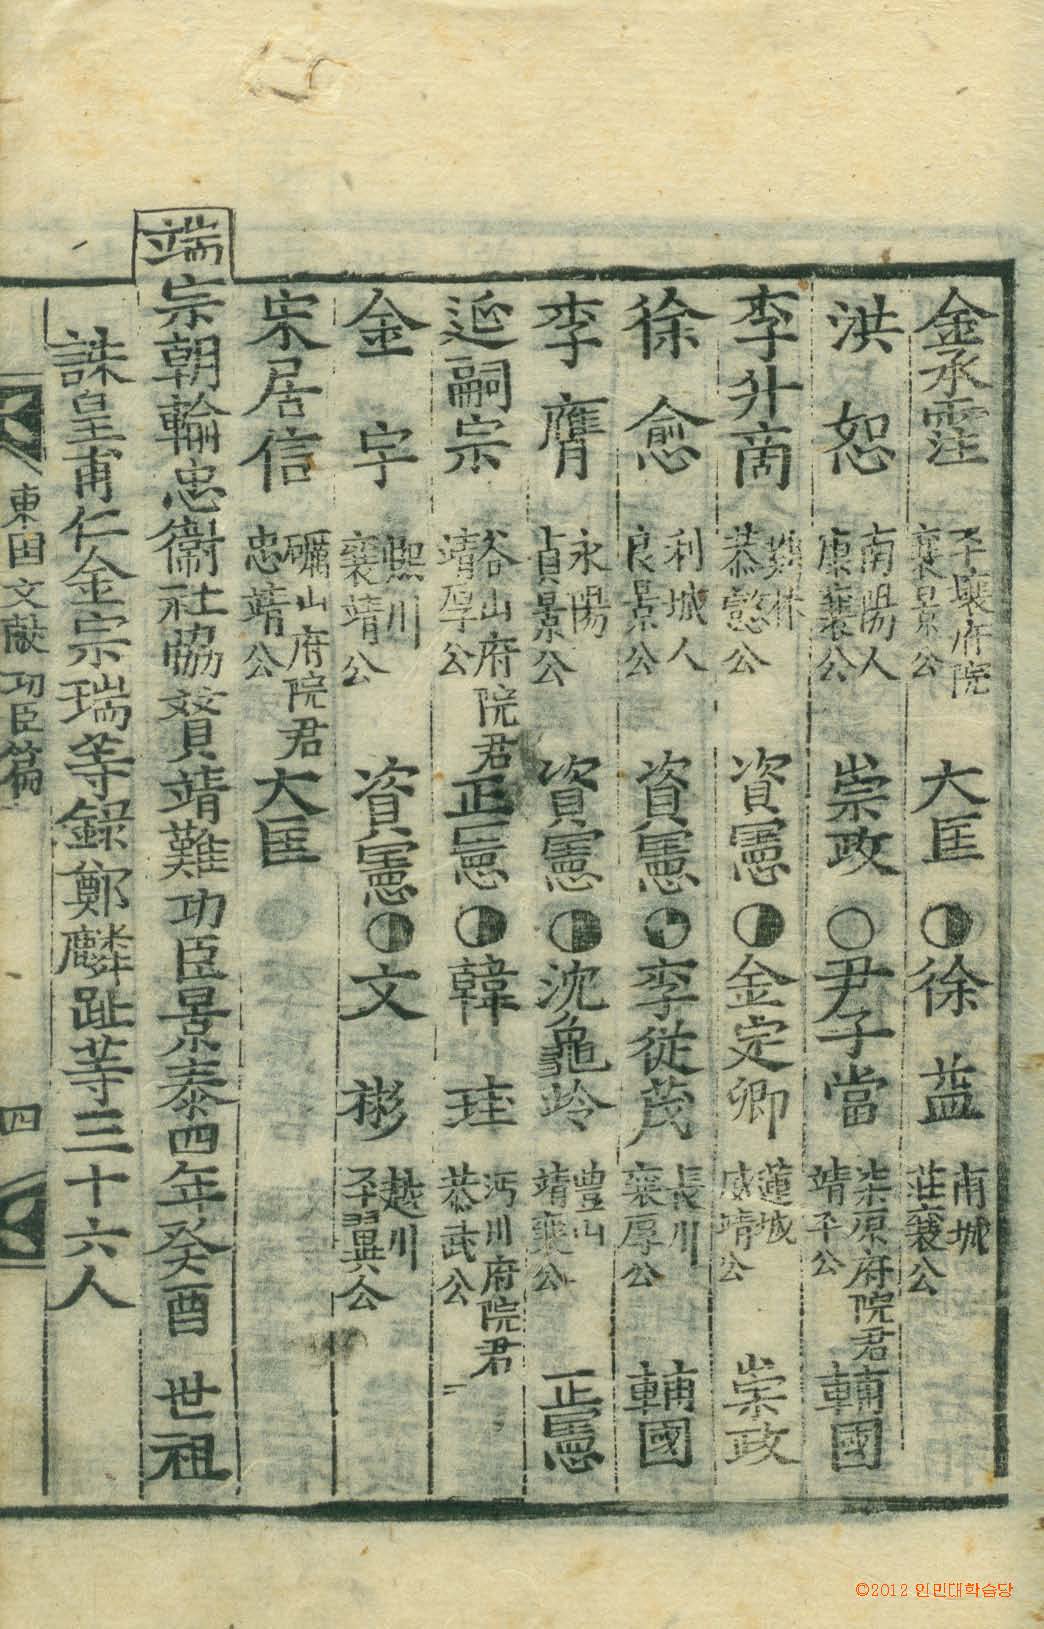 金承霔 平壤府院 襄景公 大匡 徐益 南城 莊襄公
洪恕 南陽人 康襄公 崇政 ○尹子當 柒原府院君 靖平公 輔國
李升商 鷄林 恭懿公 資憲 金定卿 蓮城 威靖公 崇政
徐愈 利城人 良景公 資憲 李從茂 長川 襄厚公 輔國
李膺 永陽 貞景公 資憲 沈龜岭 豊山 靖襄公 正憲
延嗣宗 谷山府院君 靖厚公 正憲 韓珪 沔川府院君 恭武公
金宇 熙川 襄靖公 資憲 文彬 越川 平翼公
宋居信 礪山府院君 忠靖公 大匡
端宗朝輸忠衛社協賛靖難功臣景泰四年癸酉 世祖
誅皇甫仁金宗瑞等錄鄭麟趾等三十六人
東国文献 功臣篇 四
©2012 인민대학습당